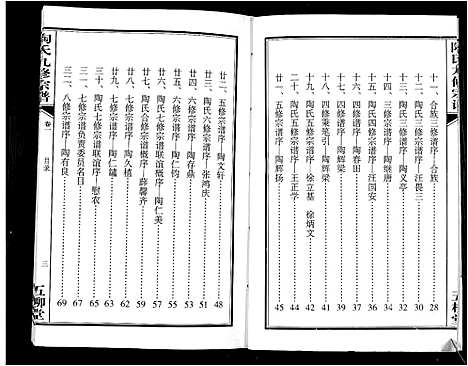 陶氏九修宗谱
十一、合族三修谱序……合族……28
十二、三修宗谱序……汪畏三……30
十三、三修宗谱序……陶义亭……32
十四、三修宗谱序……陶继唐……34
十五、四修宗谱序……汪国安……36
十六、四修宗谱序……陶春田……37
十七、四修秉笔引……陶辉梁……39
十八、四修宗谱序……陶辉梁……41
十九、五修宗谱序……徐立基 徐炳文……42
二十、五修宗谱序……王正学……44
廿一、五修宗谱序……陶辉扬……45
廿二、五修宗谱序……陶文轩……48
廿三、六修宗谱序……张鸿庆……51
廿四、六修宗谱序……陶存鼎……53
廿五、六修宗谱序……陶仁钧……55
廿六、陶氏合修宗谱概序……薛馨齐……57
廿七、陶氏七修宗谱概序……陶仁美……59
廿八、七修宗谱序……陶久植……62
廿九、七修宗谱序……陶仁罐……63
三十、陶氏七修宗谱联谊序……慰农……64
卅一、七修宗谱负责委员名目……67
卅二、八修宗谱序……陶有良……69
陶氏九修宗谱
卷一
目录
三
五柳堂
五柳堂